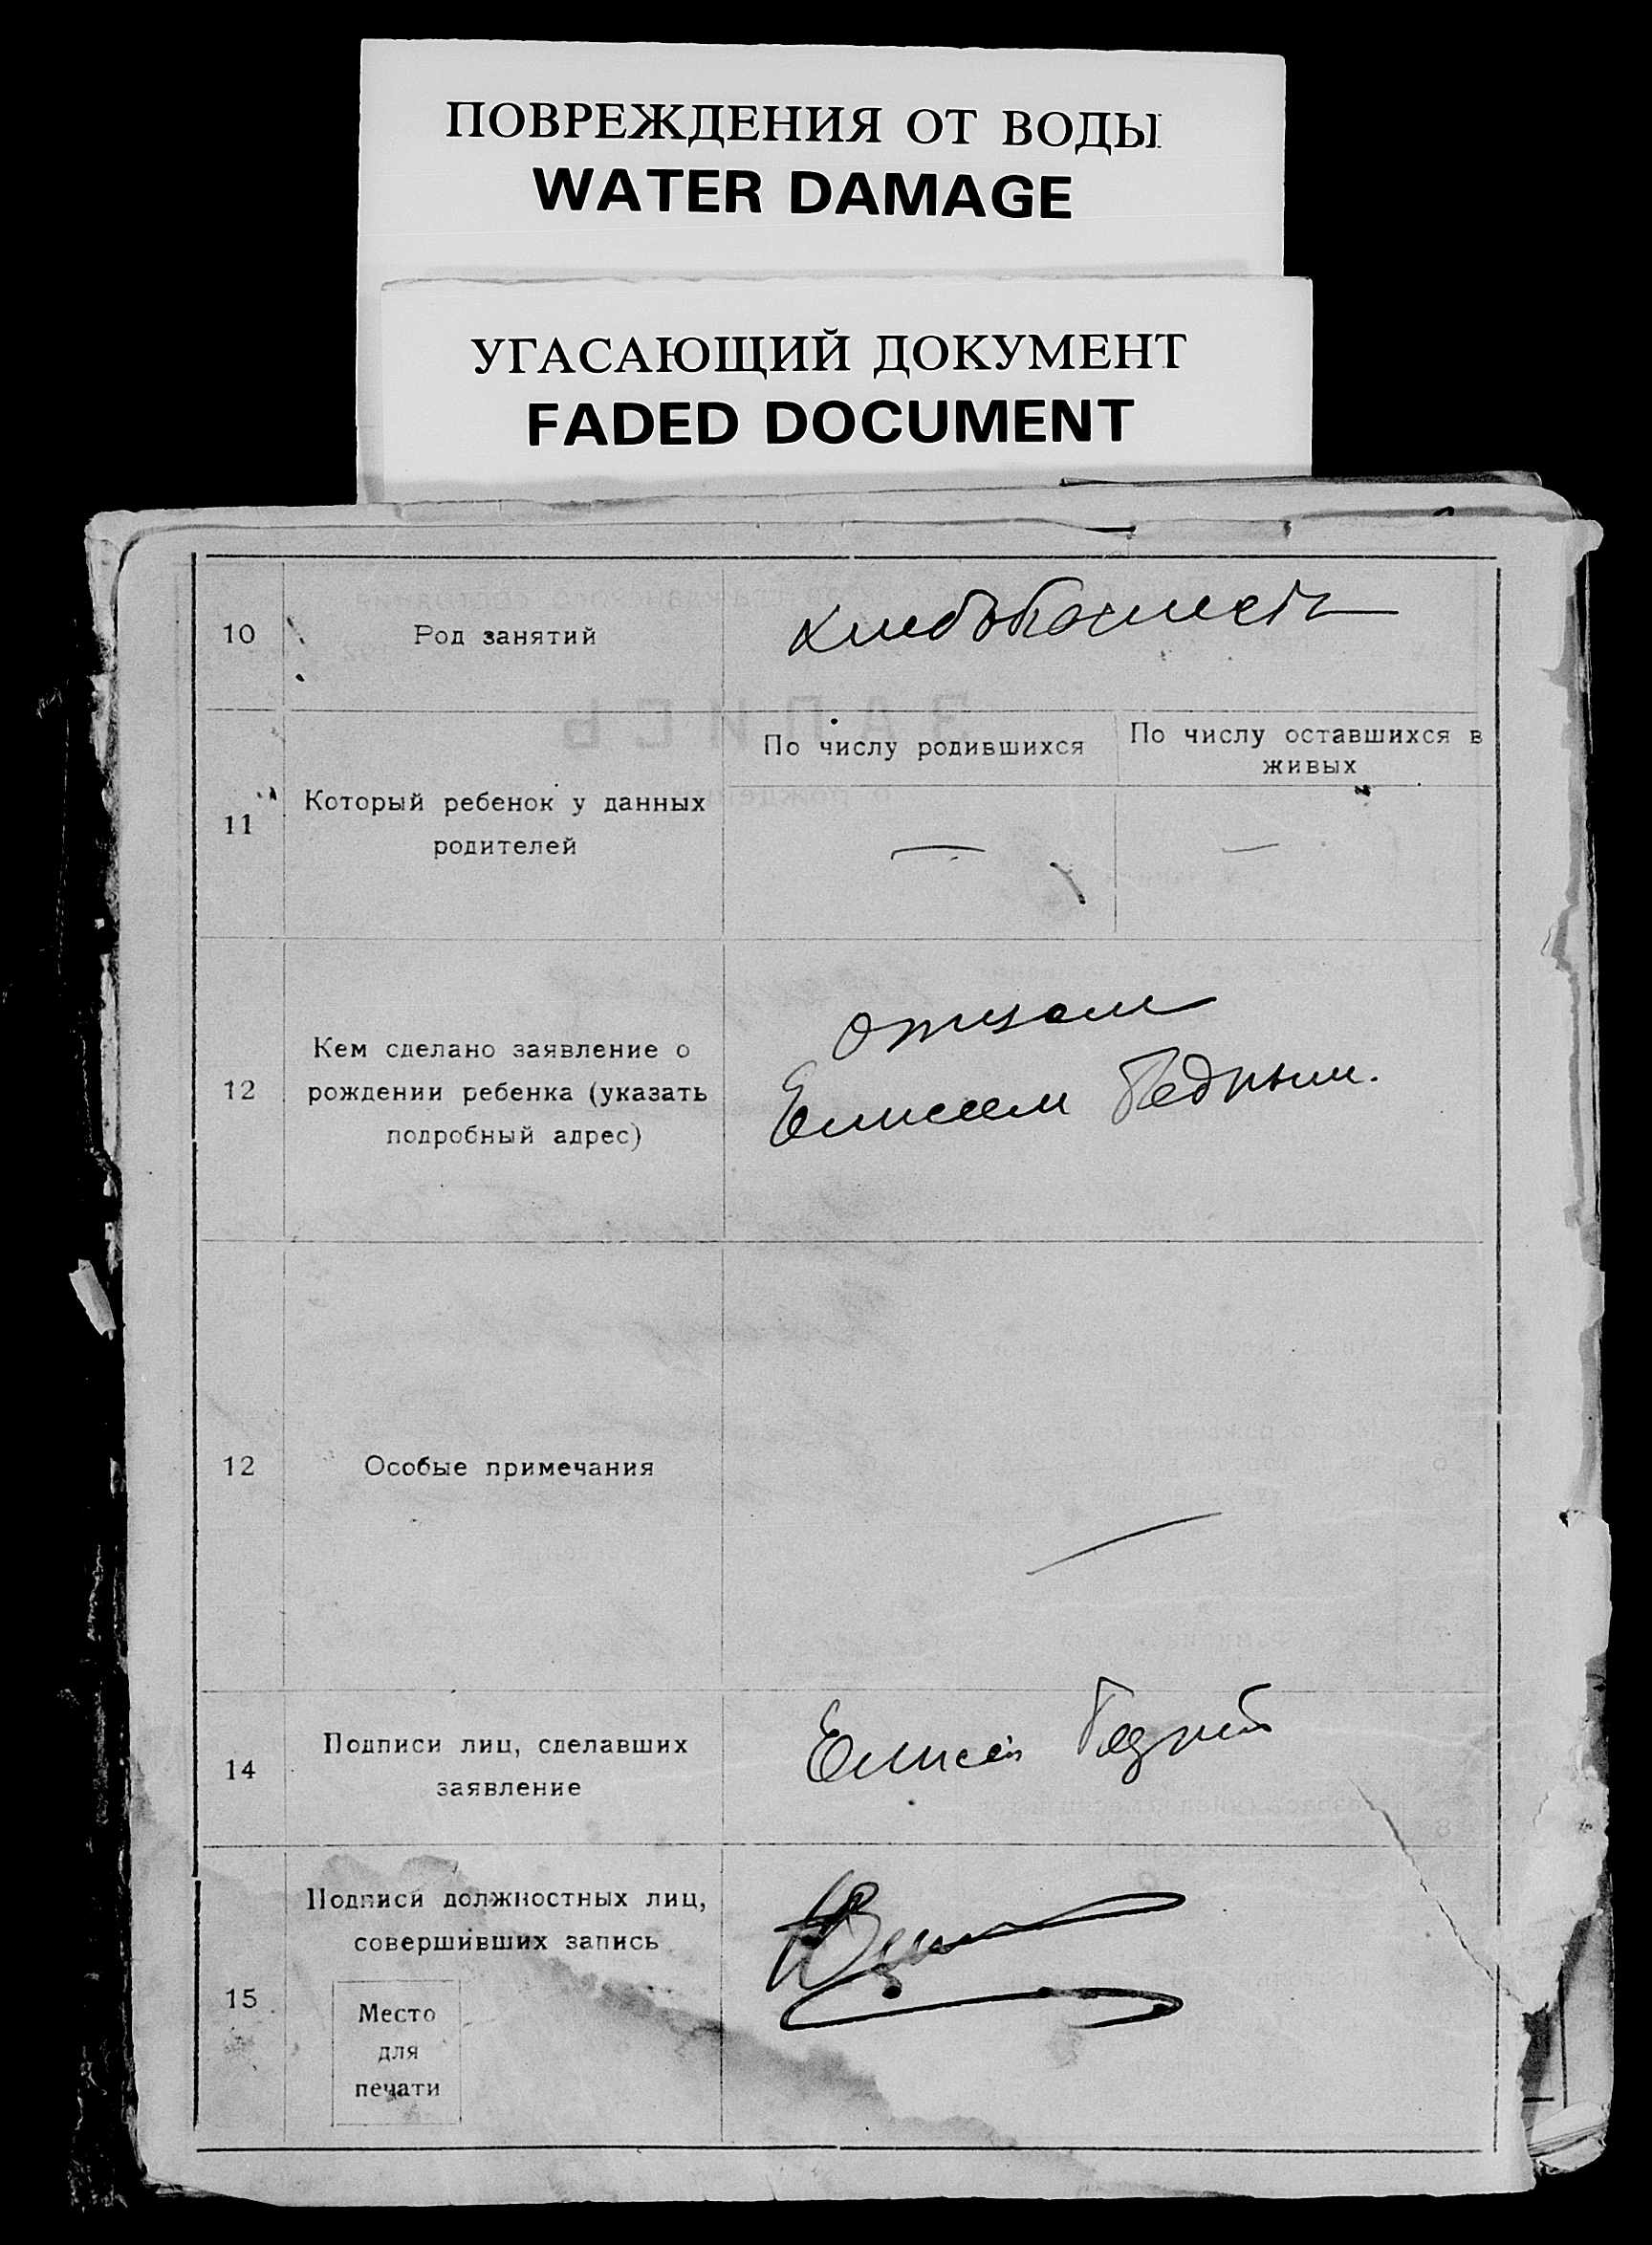 ПОВРЕЖДЕНИЯ ОТ ВОДЫ
WATER DAMAGE
УГАСАЮЩИЙ ДОКУМЕНТ
FADED DOCUMENT
10
Род занятий
11
Который ребенок у данных
родителей
По числу родившихся
По числу оставшихся в
живых
—
—
12
Кем сделано заявление о
рождении ребенка (указать
подробный адрес)
отцом
Елисеем
12
Особые примечания
—
14
Подписи лиц, сделавших
заявление
Елисей
15
Подписи должностных лиц,
совершивших запись
Место
для
печати